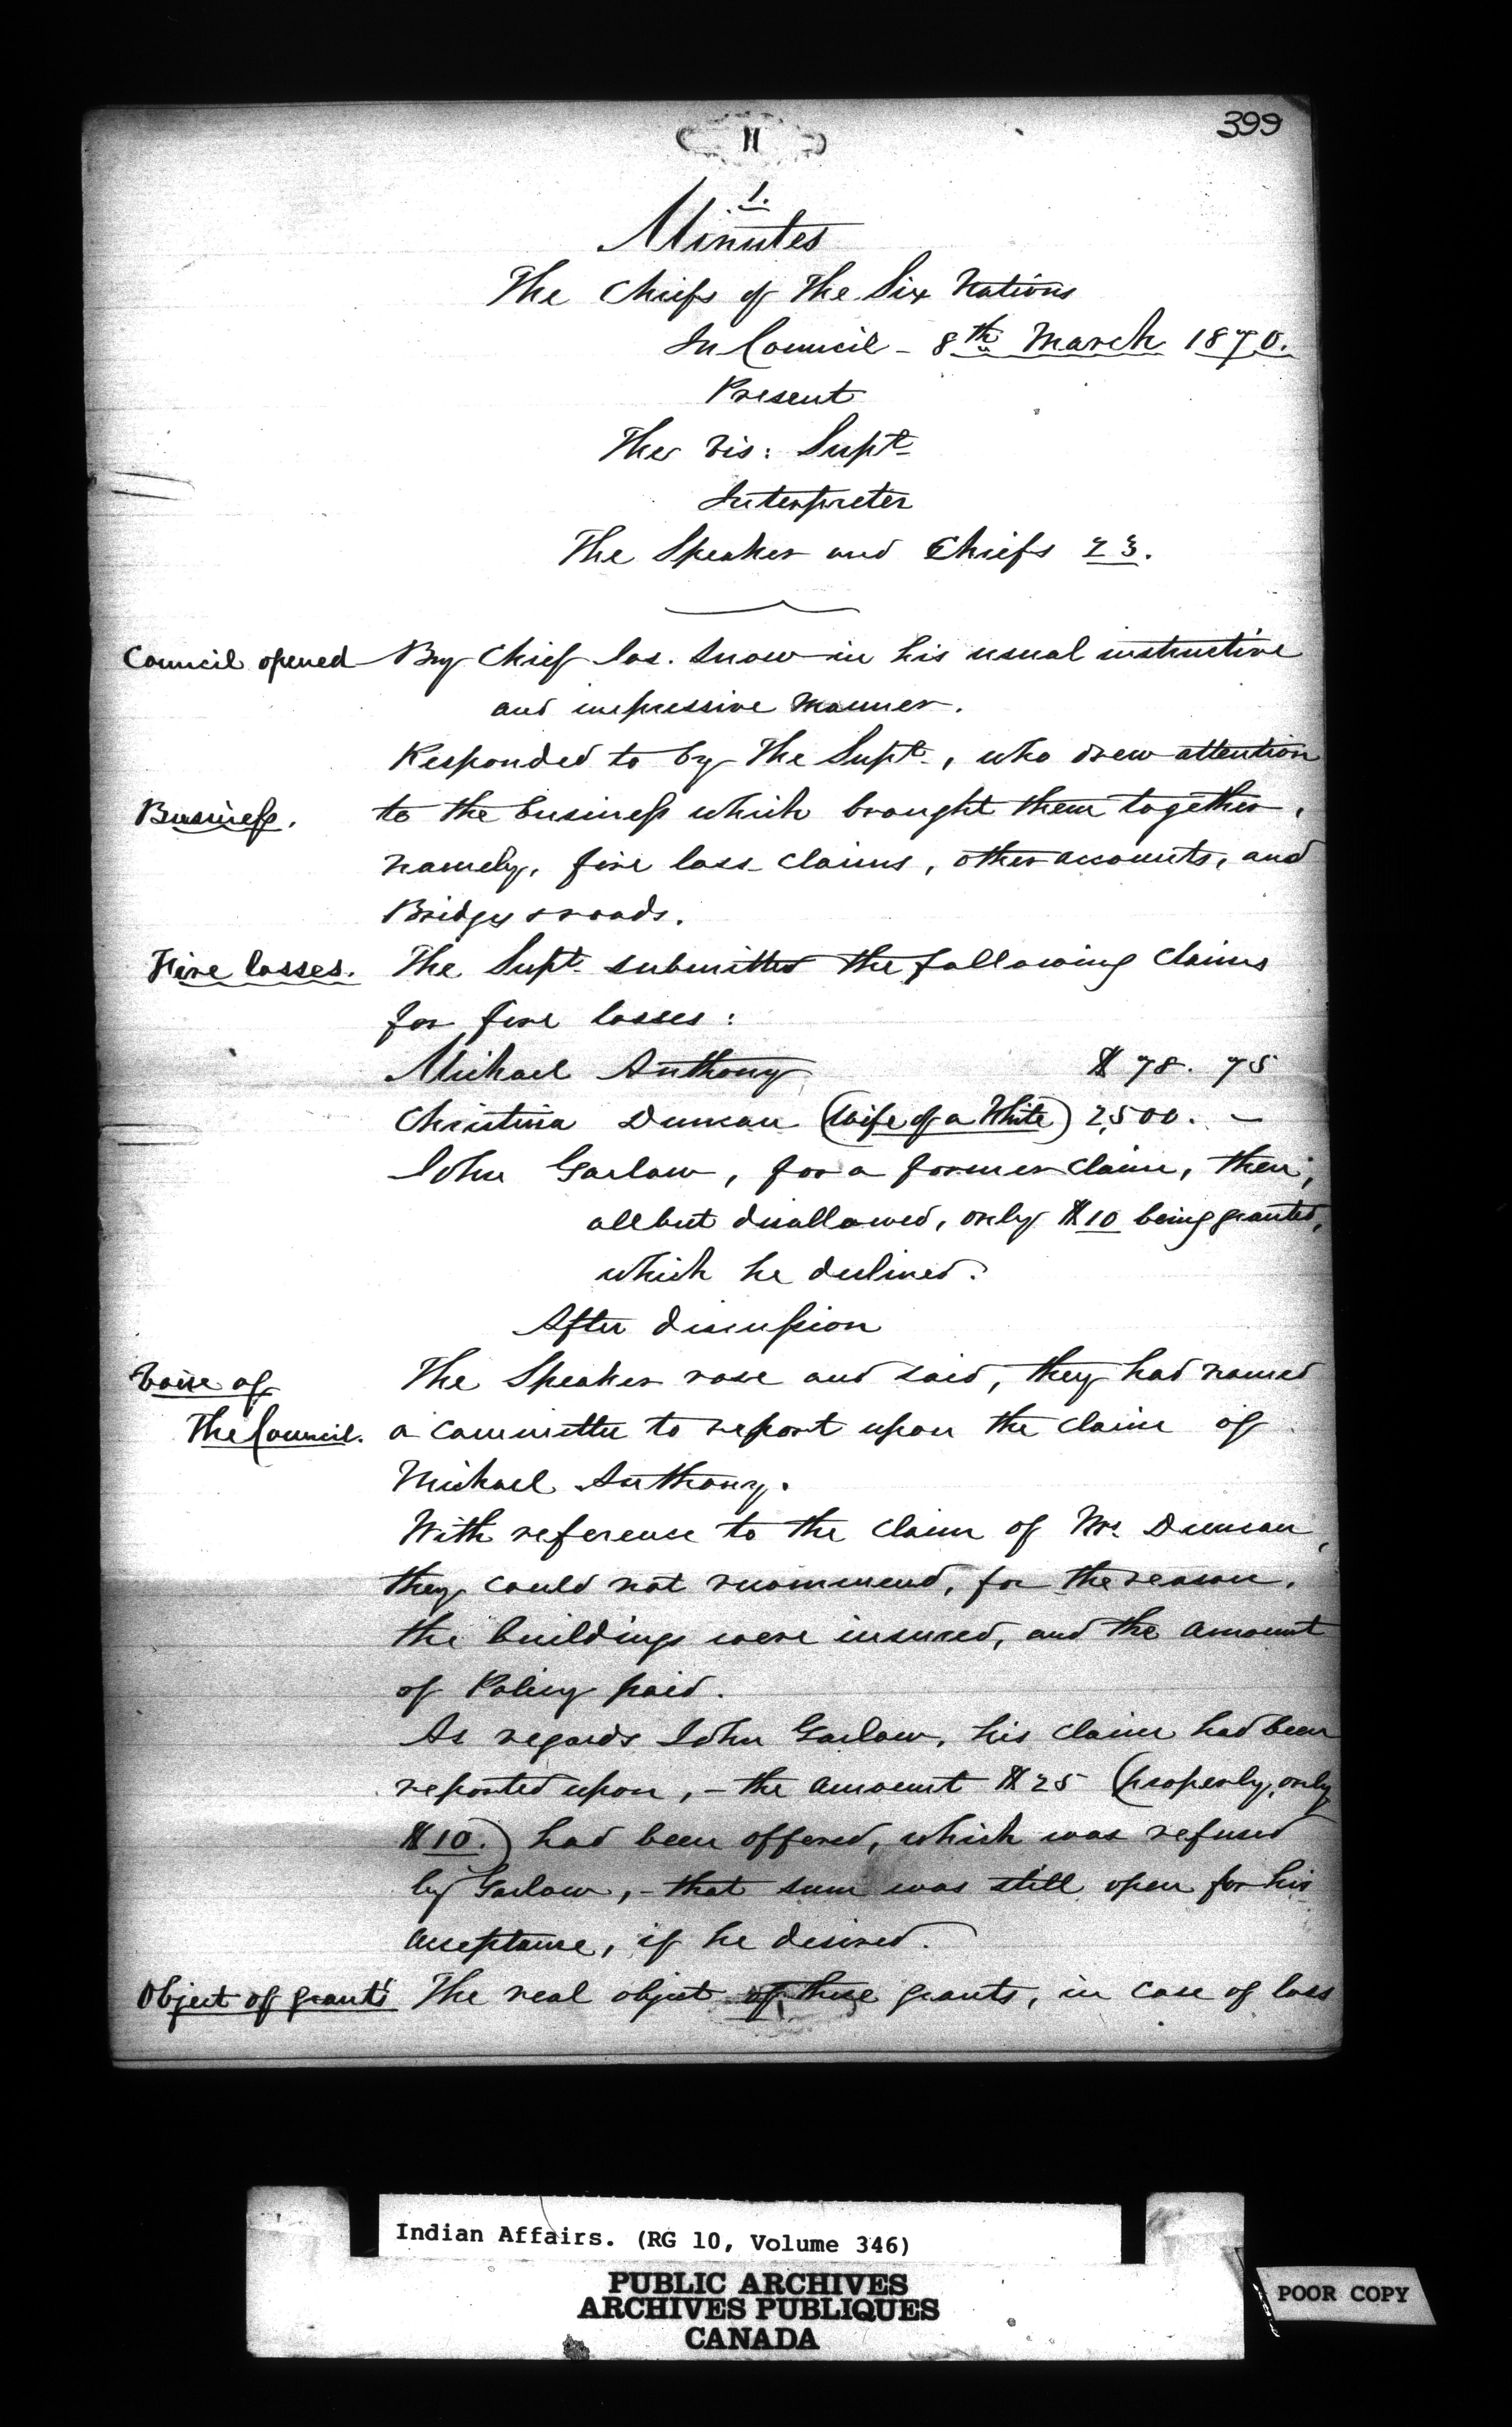 399
11
1.
Minutes
The Chiefs of The Six Nations
In Council - 8th March 1870.
Present
The Vis: Supt
Interpreter
The Speaker and Chiefs 23.
Council opened By Chief Jos. Snow in his usual instructive
and impressive manner.
Responded to by The Supt, who drew attention
Business. to the business which brought them together,
namely, fire loss claims, other accounts, and
Bridges & roads.
Fire losses. The Supt submitted the following claims
for fire losses:
Michael Anthony $78.75
Christina Duncan (Wife of a White) 2,500. –
John Garlow, for a former claim, then,
all but disallowed, only $10 being granted,
which he declined.
After discussion
Voice of The Speaker rose and said, they had named
The Council. a committee to report upon the claim of
Michael Anthony.
With reference to the claim of Mrs. Duncan,
they could not recommend, for the reason,
the buildings were insured, and the amount
of Policy paid.
As regards John Garlow, his claim had been
reported upon, – the amount $25 (properly, only
$10.) had been offered, which was refused
by Garlow, – that sum was still open for his
acceptance, if he desired.
Object of grants The real object of these grants, in case of loss
Indian Affairs. (RG 10, Volume 346)
PUBLIC ARCHIVES
ARCHIVES PUBLIQUES
CANADA
POOR COPY